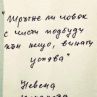 "Тръгне ли човек
с чисти подбуди
към нещо, винаги
успява"
Невена